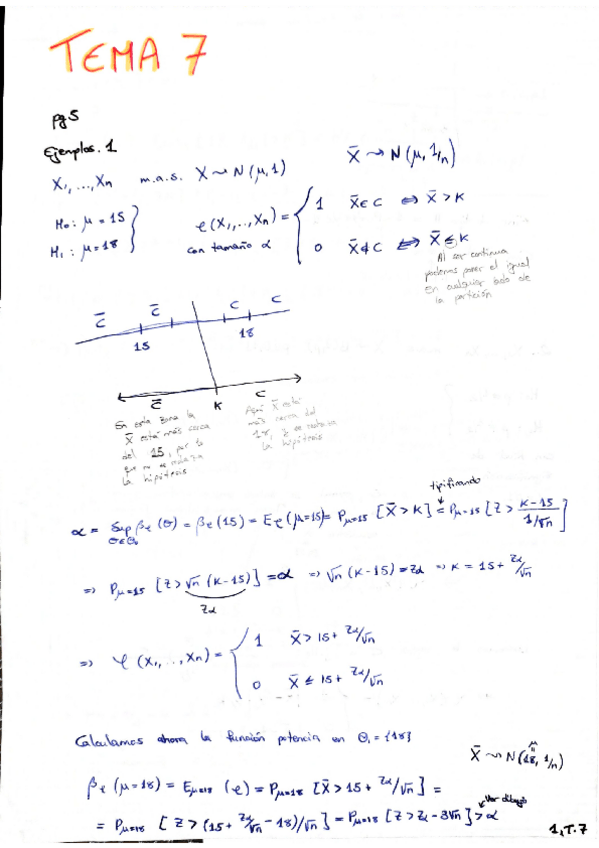 TEMA 7
Pg 5
Ejemplos. 1
X₁, ..., Xn m.a.s. X ⇝ N(μ, 1) X̄ ⇝ N(μ, 1/n)
H₀: μ = 15
H₁: μ = 18
φ(X₁, ..., Xn) =
con tamaño α
1 X̄ ∈ C ⇔ X̄ > K
0 X̄ ∉ C ⇔ X̄ ≤ K
Al ser continua
podemos poner el igual
en cualquier lado de
la partición
C̄ C̄ C C
15 18
C̄ K C
En esta zona la
X̄ está más cerca
del 15, por lo
que no se rechaza
la hipótesis
Aquí X̄ está
más cerca del
18, y se rechaza
la hipótesis
tipificando
α = Sup β_φ(θ) = β_φ(15) = E_φ(μ=15) = P_μ=15 [X̄ > K] = P_μ=15 [Z > (K-15)/(1/√n)]
θ∈Θ₀
⇒ P_μ=15 [Z > √n (K-15)] = α ⇒ √n (K-15) = Zα ⇒ K = 15 + Zα/√n
Zα
⇒ φ(X₁, ..., Xn) =
1 X̄ > 15 + Zα/√n
0 X̄ ≤ 15 + Zα/√n
Calculamos ahora la función potencia en Θ₁ = {18}
μ
X̄ ⇝ N(18, 1/n)
β_φ(μ=18) = E_μ=18 (φ) = P_μ=18 [X̄ > 15 + Zα/√n] =
Ver dibujo
= P_μ=18 [Z > (15 + Zα/√n - 18)/√n] = P_μ=18 [Z > Zα - 3√n] > α
1, T. 7